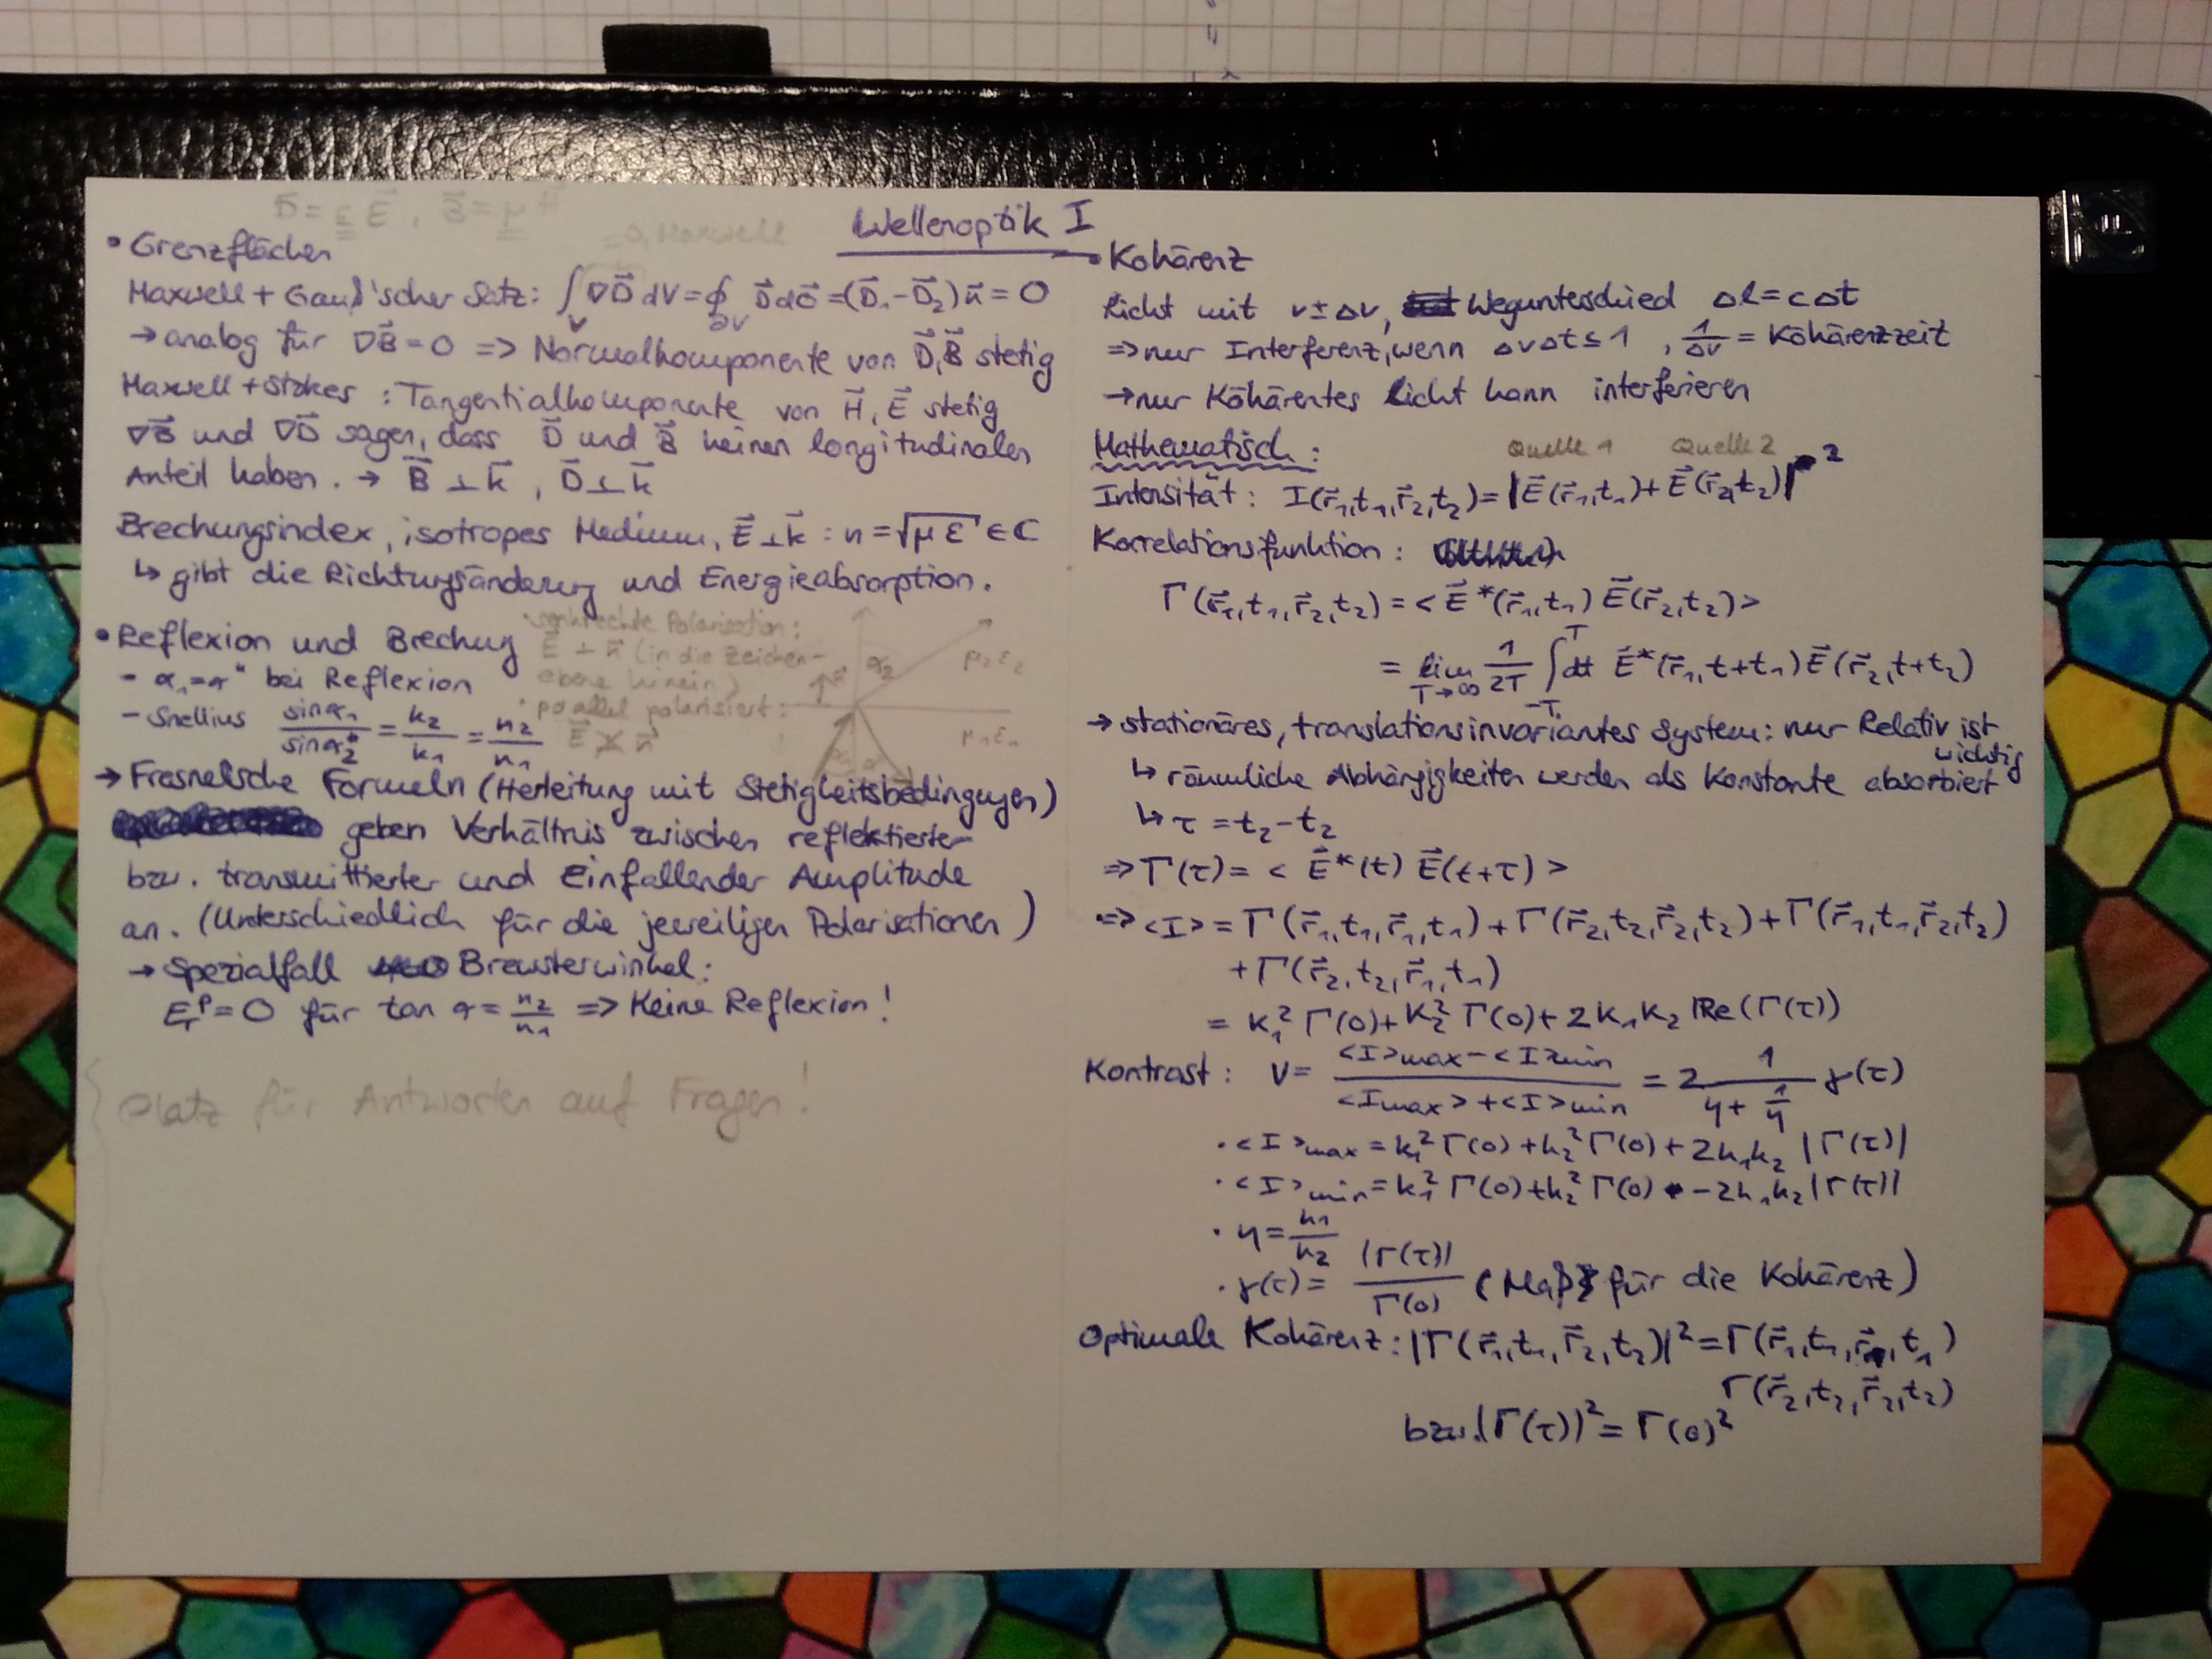 Wellenoptik I
D⃗ = ε E⃗ , B⃗ = μ H⃗
= 0, Maxwell
• Grenzflächen
Maxwell + Gauß'scher Satz: ∫_V ∇D⃗ dV = ∮_∂V D⃗ dσ⃗ = (D⃗₁ - D⃗₂) n⃗ = 0
→ analog für ∇B⃗ = 0 => Normalkomponente von D⃗, B⃗ stetig
Maxwell + Stokes : Tangentialkomponente von H⃗, E⃗ stetig
∇B⃗ und ∇D⃗ sagen, dass D⃗ und B⃗ keinen longitudinalen
Anteil haben. → B⃗ ⊥ k⃗ , D⃗ ⊥ k⃗
Brechungsindex, isotropes Medium, E⃗ ⊥ k⃗ : n = √(μ ε) ∈ C
↳ gibt die Richtungsänderung und Energieabsorption.
• Reflexion und Brechung
- α₁ = α'' bei Reflexion
- Snellius sinα₁/sinα₂ = k₂/k₁ = n₂/n₁
· senkrechte Polarisation:
E⃗ ⊥ n⃗ (in die Zeichen-
ebene hinein)
· parallel polarisiert:
E⃗ n⃗
n⃗ α₂ μ₂ ε₂
μ₁ ε₁
→ Fresnelsche Formeln (Herleitung mit Stetigkeitsbedingungen)
geben Verhältnis zwischen reflektierter
bzw. transmittierter und Einfallender Amplitude
an. (Unterschiedlich für die jeweiligen Polarisationen)
→ Spezialfall Brewsterwinkel:
E_r^p = 0 für tan α = n₂/n₁ => Keine Reflexion!
Platz für Antworten auf Fragen!
• Kohärenz
Licht mit ν ± Δν, Wegunterschied Δl = cΔt
=> nur Interferenz, wenn ΔνΔt ≤ 1 , 1/Δν = Kohärenzzeit
→ nur Kohärentes Licht kann interferieren
Mathematisch :
Quelle 1 Quelle 2
Intensität : I(r⃗₁,t₁,r⃗₂,t₂) = |E⃗(r⃗₁,t₁) + E⃗(r⃗₂,t₂)|²
Korrelationsfunktion :
Γ(r⃗₁,t₁,r⃗₂,t₂) = < E⃗*(r⃗₁,t₁) E⃗(r⃗₂,t₂) >
= lim_{T→∞} 1/2T ∫_{-T}^{T} dt E⃗*(r⃗₁,t+t₁) E⃗(r⃗₂,t+t₂)
→ stationäres, translationsinvariantes System: nur Relativ ist
wichtig
↳ räumliche Abhängigkeiten werden als Konstante absorbiert
↳ τ = t₂ - t₂
=> Γ(τ) = < E⃗*(t) E⃗(t+τ) >
=> <I> = Γ(r⃗₁,t₁,r⃗₁,t₁) + Γ(r⃗₂,t₂,r⃗₂,t₂) + Γ(r⃗₁,t₁,r⃗₂,t₂)
+ Γ(r⃗₂,t₂,r⃗₁,t₁)
= K₁² Γ(0) + K₂² Γ(0) + 2K₁K₂ Re(Γ(τ))
Kontrast : V = (<I>max - <I>min)/(<Imax> + <I>min) = 2 1/(η + 1/η) γ(τ)
· <I>max = k₁² Γ(0) + k₂² Γ(0) + 2k₁k₂ |Γ(τ)|
· <I>min = k₁² Γ(0) + k₂² Γ(0) - 2k₁k₂ |Γ(τ)|
· η = k₁/k₂
· γ(τ) = |Γ(τ)|/Γ(0) (Maß für die Kohärenz)
Optimale Kohärenz : |Γ(r⃗₁,t₁,r⃗₂,t₂)|² = Γ(r⃗₁,t₁,r⃗₁,t₁)
Γ(r⃗₂,t₂,r⃗₂,t₂)
bzw. |Γ(τ)|² = Γ(0)²